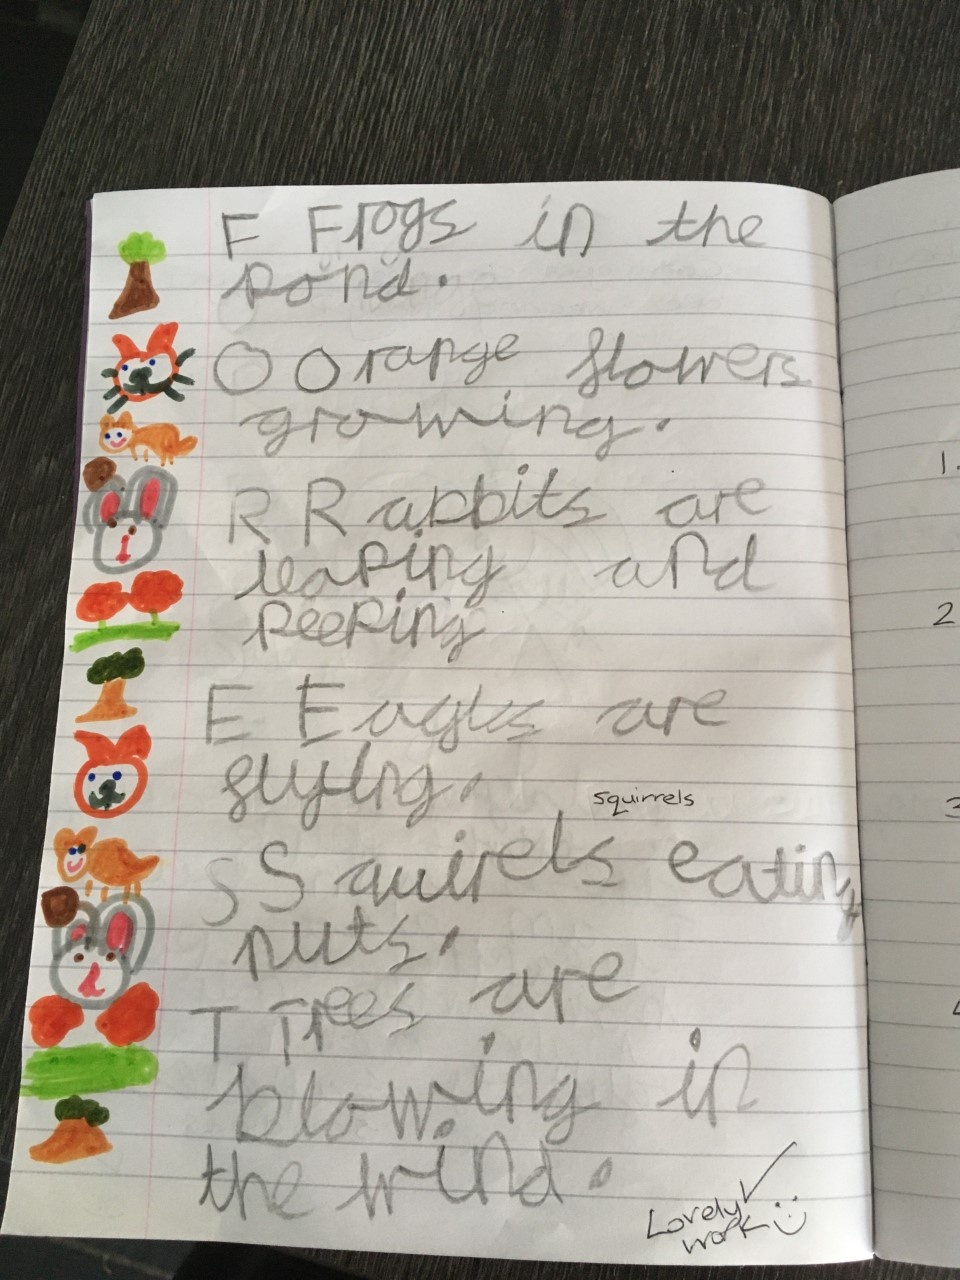 F Frogs in the
pond.
O Orange flowers
growing.
R Rabbits are
leaping and
peeping
E Eagles are
flying.
squirrels
S Squirels eating
nuts.
T Trees are
blowing in
the wind.
Lovely
work
1.
2
3
4